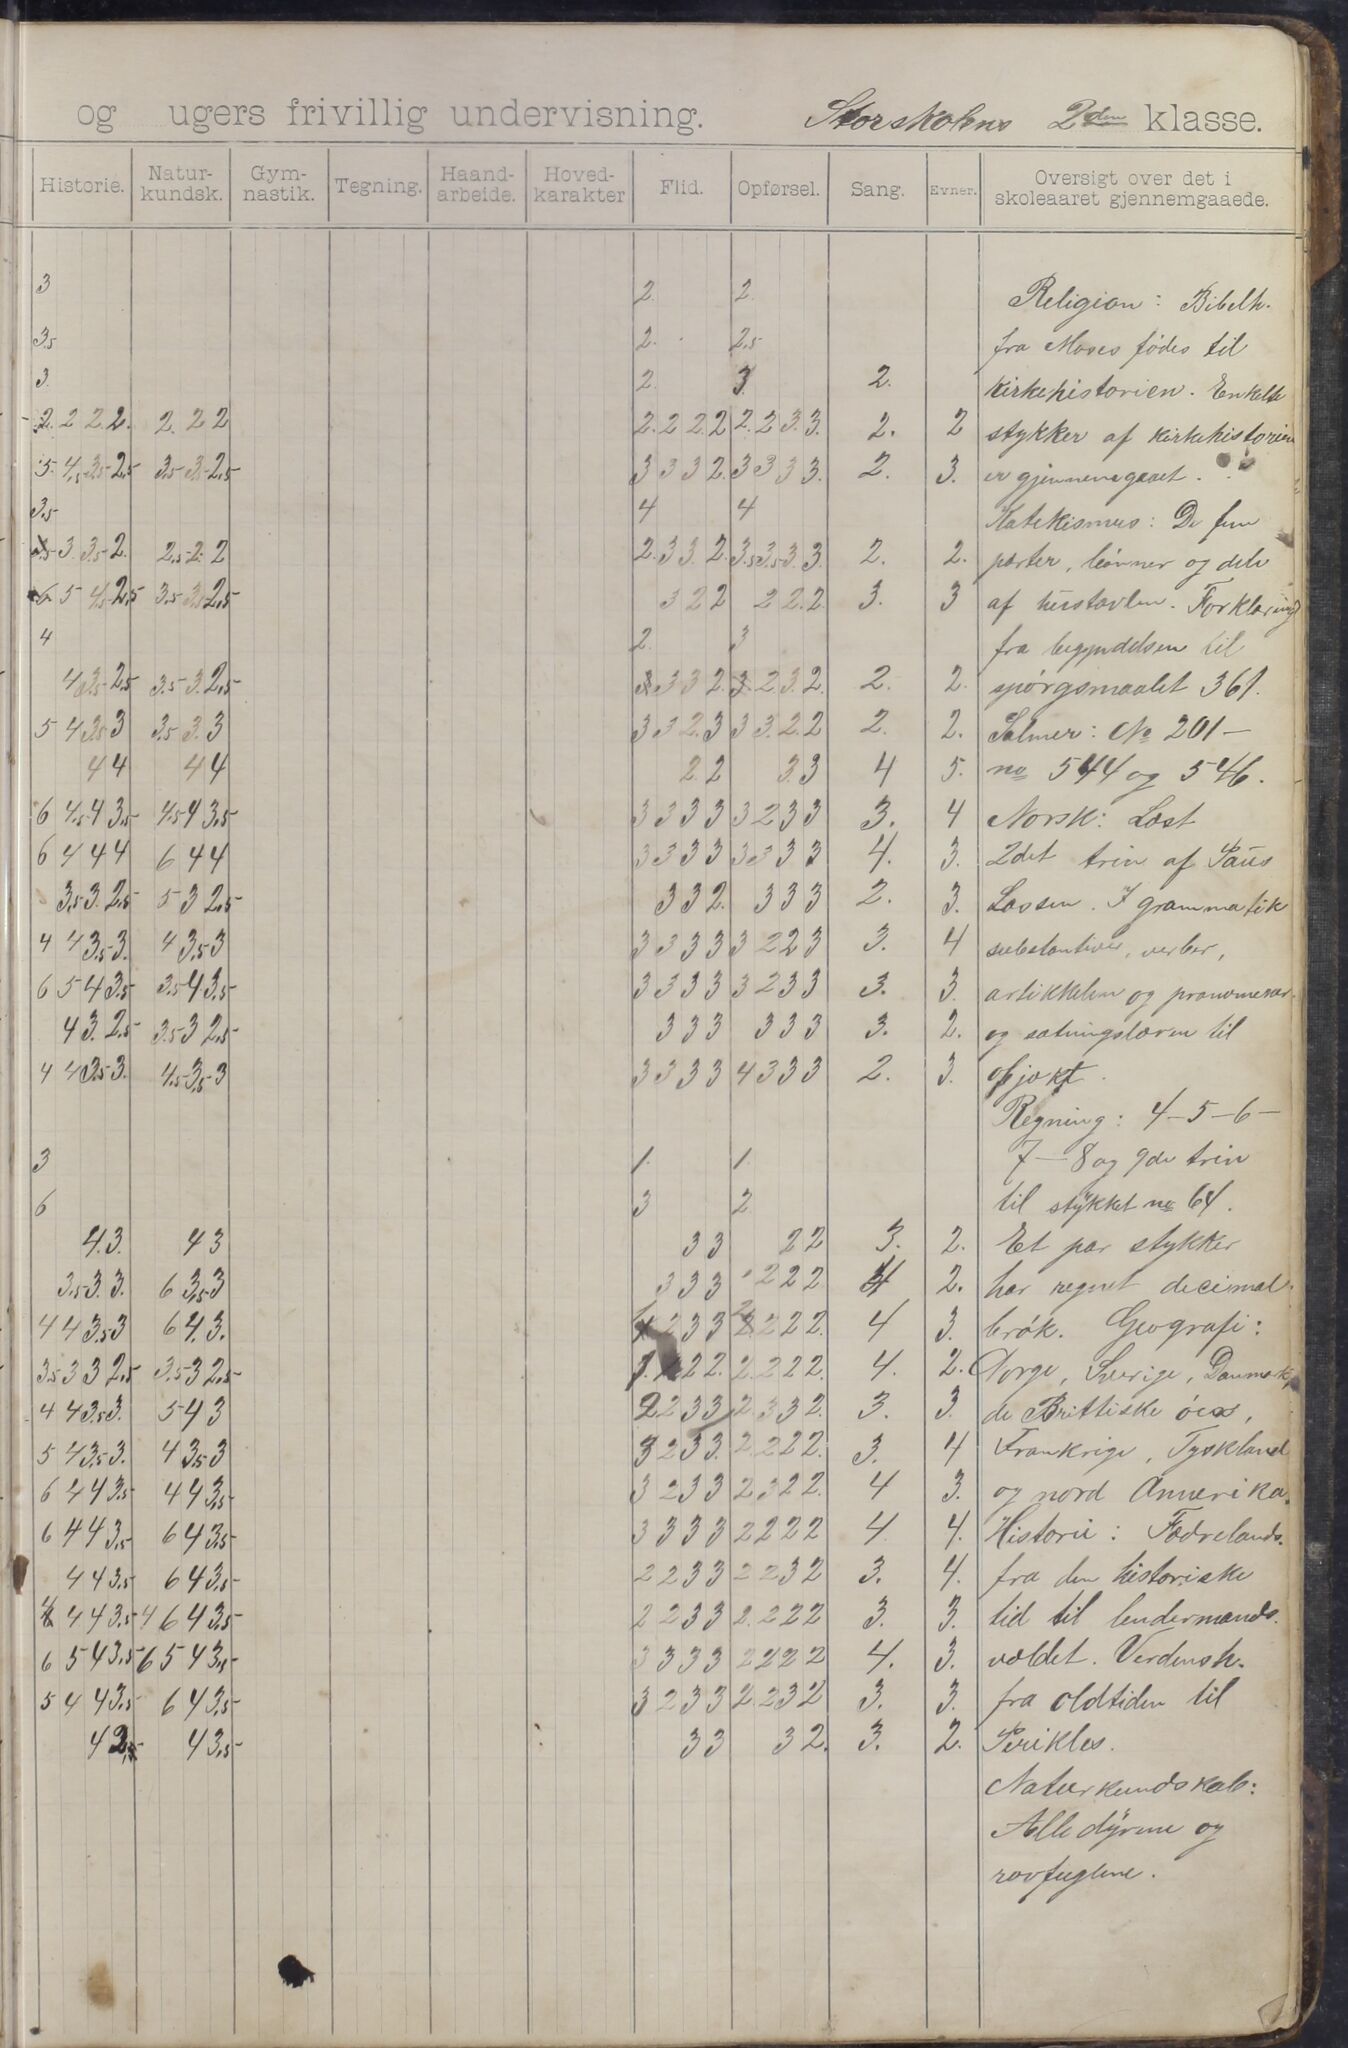 og ugers frivillig undervisning. Storskolens 2den klasse.
Historie. Natur-kundsk. Gym-nastik. Tegning. Haand-arbeide. Hoved-karakter Flid. Opførsel. Sang. Evner. Oversigt over det i skoleaaret gjennemgaaede.
3 2. 2. Religion: Bibelh.
3,5 2. 2,5 fra Moses fødes til
3. 2. 3. 2. kirkehistorien. Enkelte
2. 2 2 2. 2. 2 2 2. 2 2 2 2. 2 3 3. 2. 2 stykker af kirkehistorien
5. 4,5 3,5 2,5 3,5 3,5 2,5 3 3 3 2. 3 3 3 3. 2. 3. er gjennemgaaet.
3,5 4 4 Katekismus: De fem
3 3,5 2. 2,5 2. 2 2. 3 3 2. 3,5 3,5 3 3. 2. 2. parter, bønner og dele
6 5 4,5 2,5 3,5 3,5 2,5 3 2 2 2 2. 2 3. 3 af hustavlen. Forklaring
4 2. 3 fra begyndelsen til
4 3,5 2,5 3,5 3. 2,5 3 3 3 2. 3 2 3. 2. 2. 2. spørgsmaalet 361.
5 4 3,5 3 3,5 3. 3 3 3 2. 3 3 3. 2. 2 2. 2. Salmer: No 201 —
4 4 4 4 2. 2 3 3 4 5. no 544 og 546.
6 4,5 4 3,5 4,5 4 3,5 3 3 3 3 3 2 3 3 3. 4 Norsk: Læst
6 4 4 4 6 4 4 3 3 3 3 3 3 3 3 4. 3. 2det trin af Paus
3,5 3. 2,5 5 3 2,5 3 3 2. 3 3 3 2. 3. Lassen. I grammatik
4 4 3,5 3. 4 3,5 3 3 3 3 3 3 2 2 3 3. 4 substantiver, verber,
6 5 4 3,5 3,5 4 3,5 3 3 3 3 3 2 3 3 3. 3. artikkelen og pronomener
4 3. 2,5 3,5 3 2,5 3 3 3 3 3 3 3. 2. og sætningslæren til
4 4 3,5 3. 4,5 3,5 3 3 3 3 3 4 3 3 3 2. 3. objekt.
Regning: 4—5—6—
3 1. 1. 7—8 og 9de trin
6 3 2 til stykket no 64.
4. 3. 4 3 3 3 2 2 3. 2. Et par stykker
3,5 3 3. 6 3,5 3 3 3 3 2 2 2 4 2. har regnet decimal-
4 4 3,5 3 6 4. 3. 2 3 3 2 2 2. 4 3. brøk. Geografi:
3,5 3 3 2,5 3,5 3 2,5 1. 2 2. 2. 2 2 2. 4. 2. Norge, Sverige, Danmark,
4 4 3,5 3. 5 4 3 2 2 3 3 2 3 3 2. 3. 3. de Brittiske øer,
5 4 3,5 3. 4 3,5 3 3 2 3 3. 2. 2 2 2. 3. 4 Frankrige, Tyskland
6 4 4 3,5 4 4 3,5 3 2 3 3 2 3 2 2. 4 3. og nord Amerika.
6 4 4 3,5 6 4 3,5 3 3 3 3 2 2 2 2 4. 4. Historie: Fædrelands.
4 4 3,5 6 4 3,5 2 2 3 3 2 2 3 2 3. 4. fra den historiske
4 4 4 3,5 4 6 4 3,5 2 2 3 3 2. 2 2 2 3. 3. tid til lendermands.
6 5 4 3,5 6 5 4 3,5 3 3 3 3 2 2 2 2 4. 3. vældet. Verdensh.
5 4 4 3,5 6 4 3,5 3 2 3 3 2. 2 3 2 3. 3. fra oldtiden til
4 2,5 4 3,5 3 3 3 2. 3. 2. Perikles.
Naturkundskab:
Alle dyrene og
rovfuglene.